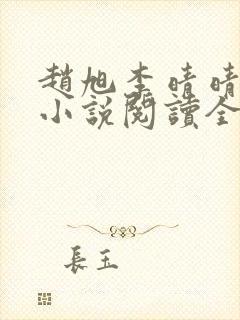 趙旭李晴晴
小說閱讀全
長玉